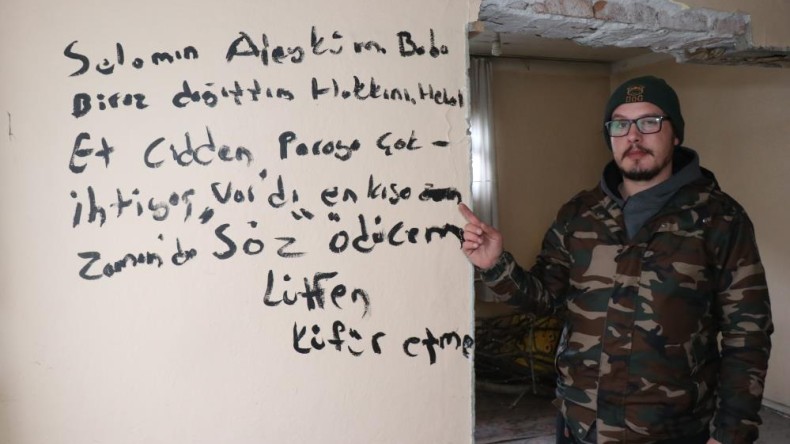 Selamın Aleyküm Baba
Biraz dağıttım Hakkını Helal
Et Cidden Paraya Çok-
ihtiyaç Var'dı en kısa
zaman'da "SÖZ" ödücem
Lütfen
küfür etme